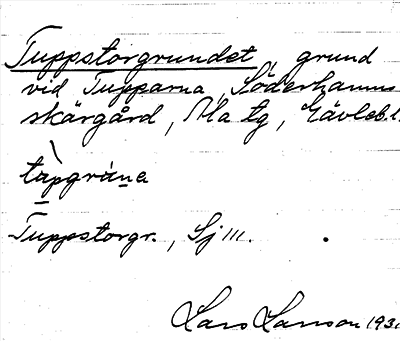 Tuppstorgrundet, grund
vid Tupparna, Söderhamns
skärgård, Ala tg, Gävleb. l.
tàpgrùna
Tuppstorgr., Sj 111.
Lars Larsson 193